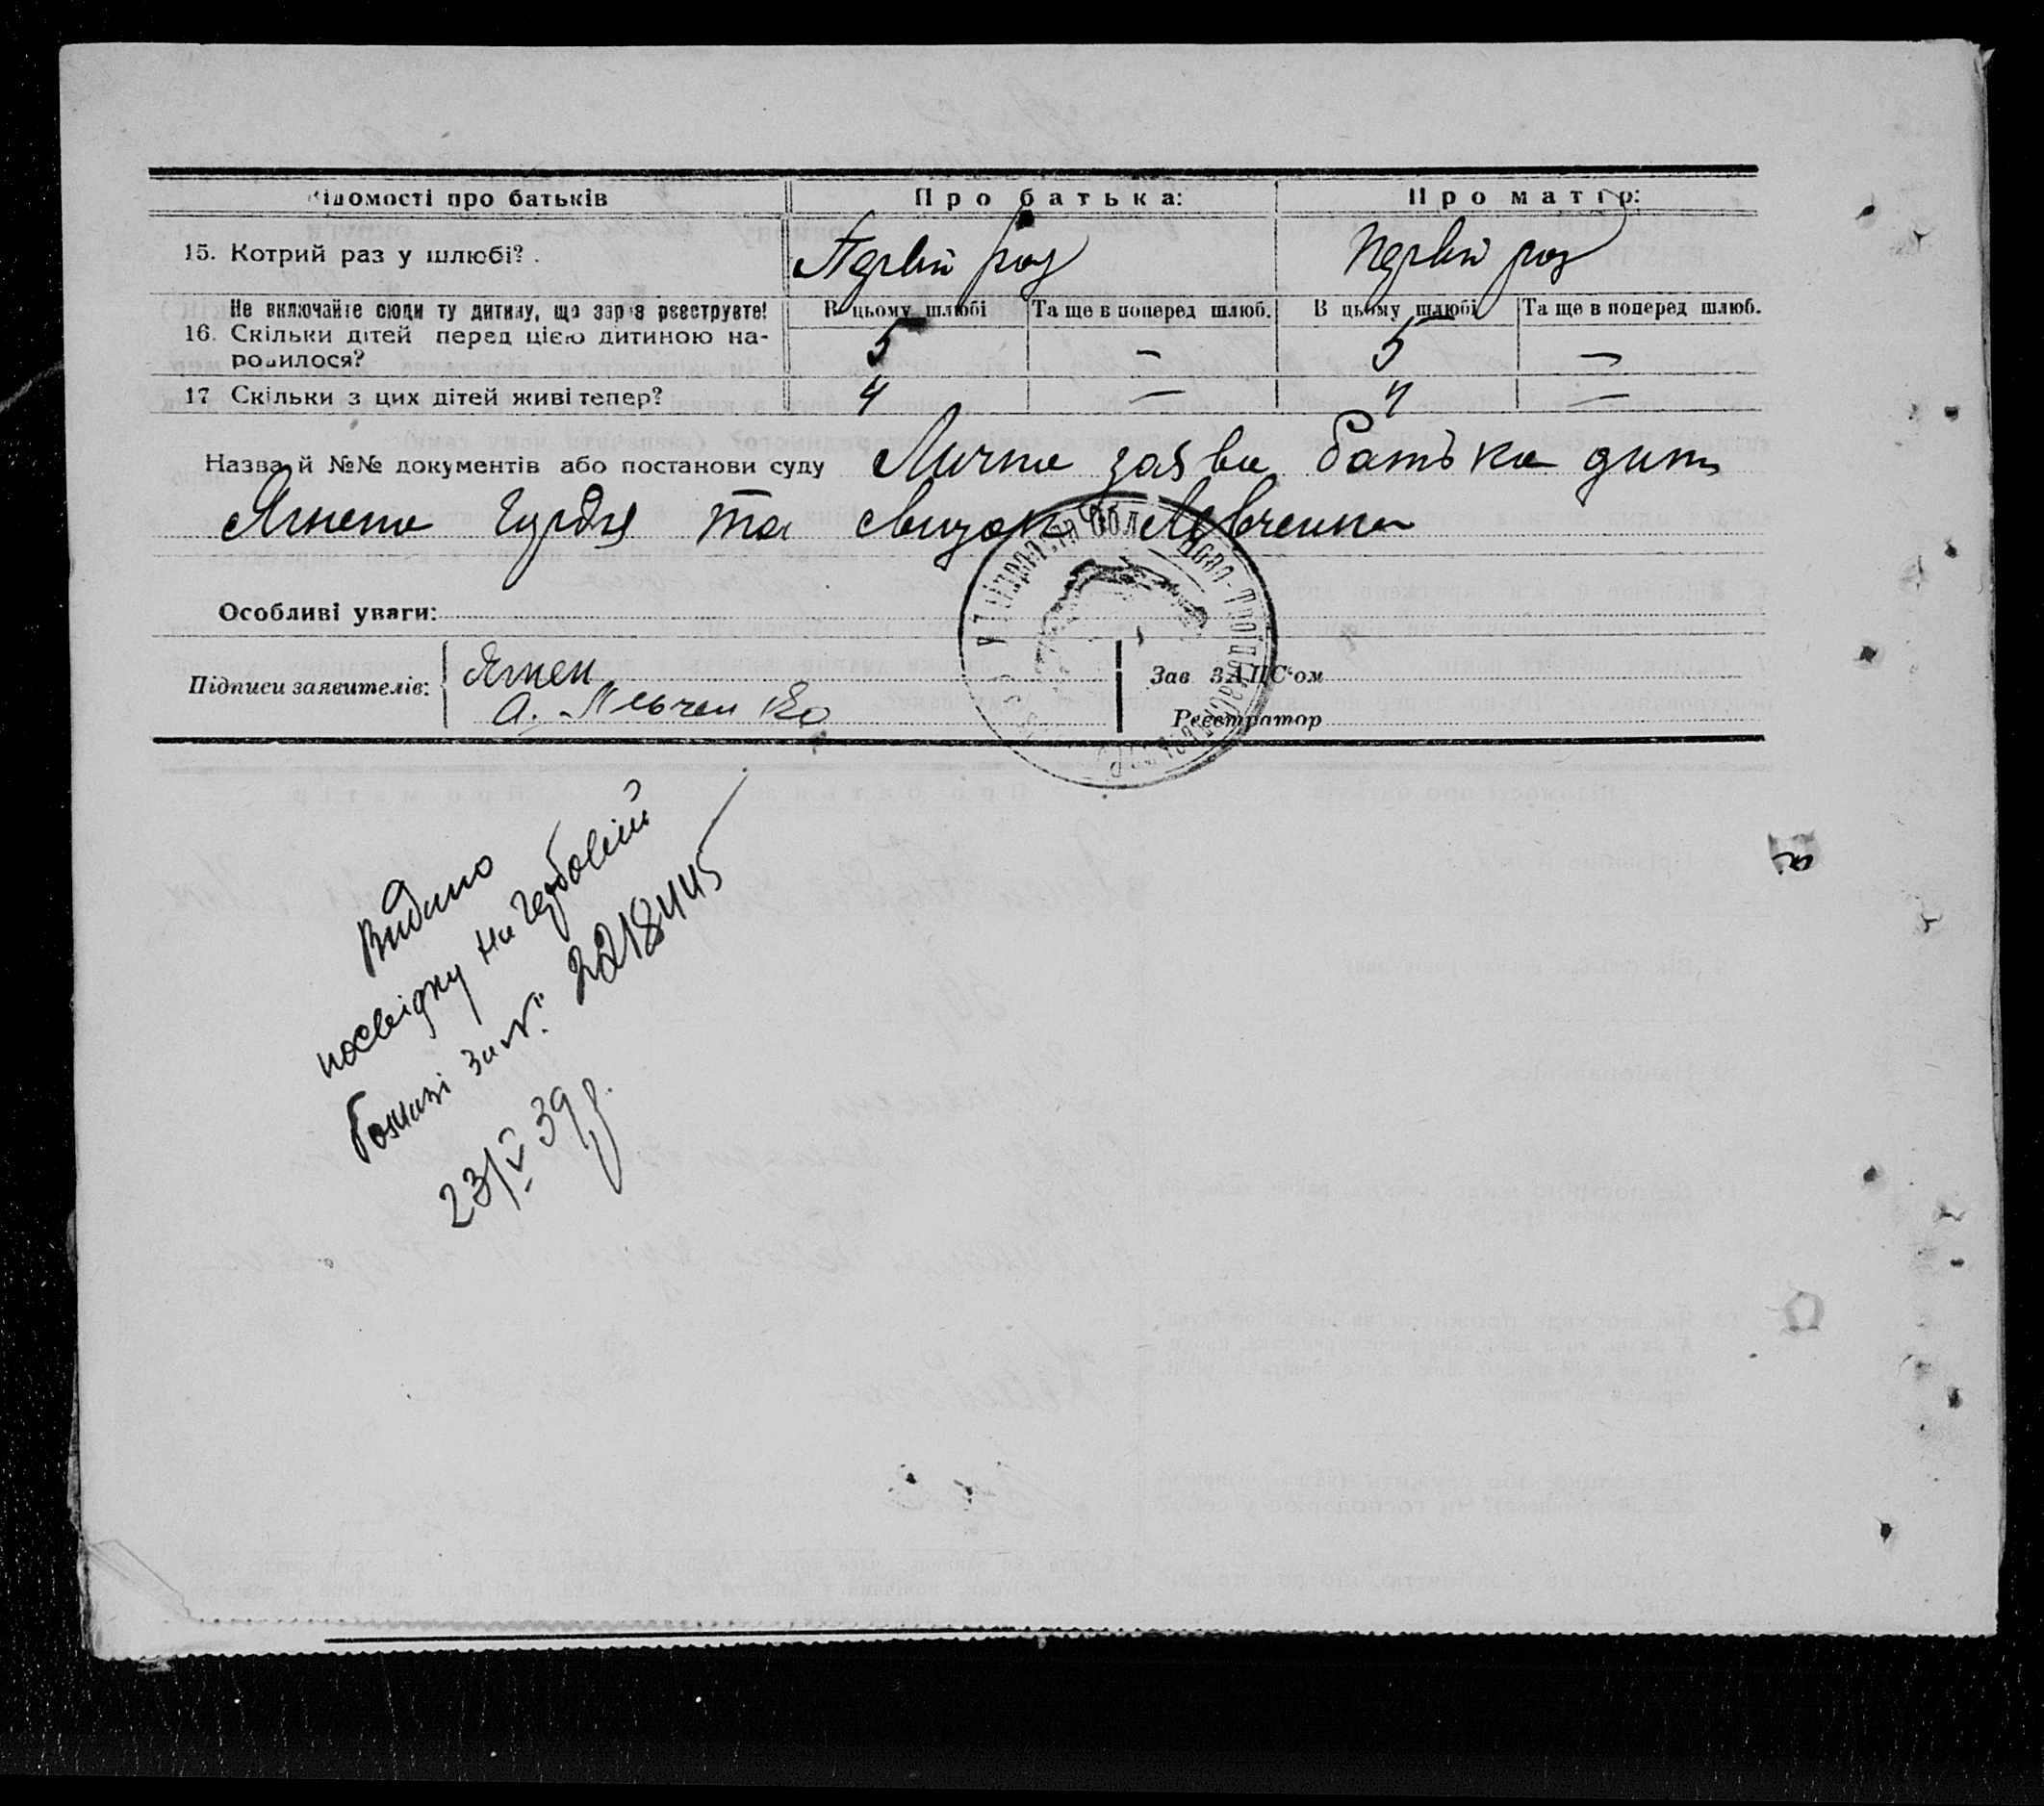 Відомості про батьків Про батька: Про матір:
15. Котрий раз у шлюбі? Первий раз Первий раз
Не включайте сюди ту дитину, що зараз реєструєте! В цьому шлюбі Та ще в поперед шлюб. В цьому шлюбі Та ще в поперед шлюб.
16. Скільки дітей перед цією дитиною на- 5 — 5 —
родилося?
17 Скільки з цих дітей живі тепер? 4 — 4 —
Назва й №№ документів або постанови суду Лична заява батька дит
та Левченка
Особливі уваги:
Підписи заявителів: Ягнен
А. Левченко
Зав ЗАПС'ом
Реєстратор
Видано
посвідку на гербовій
бомазі за №: 2218445
23/V 39 р.